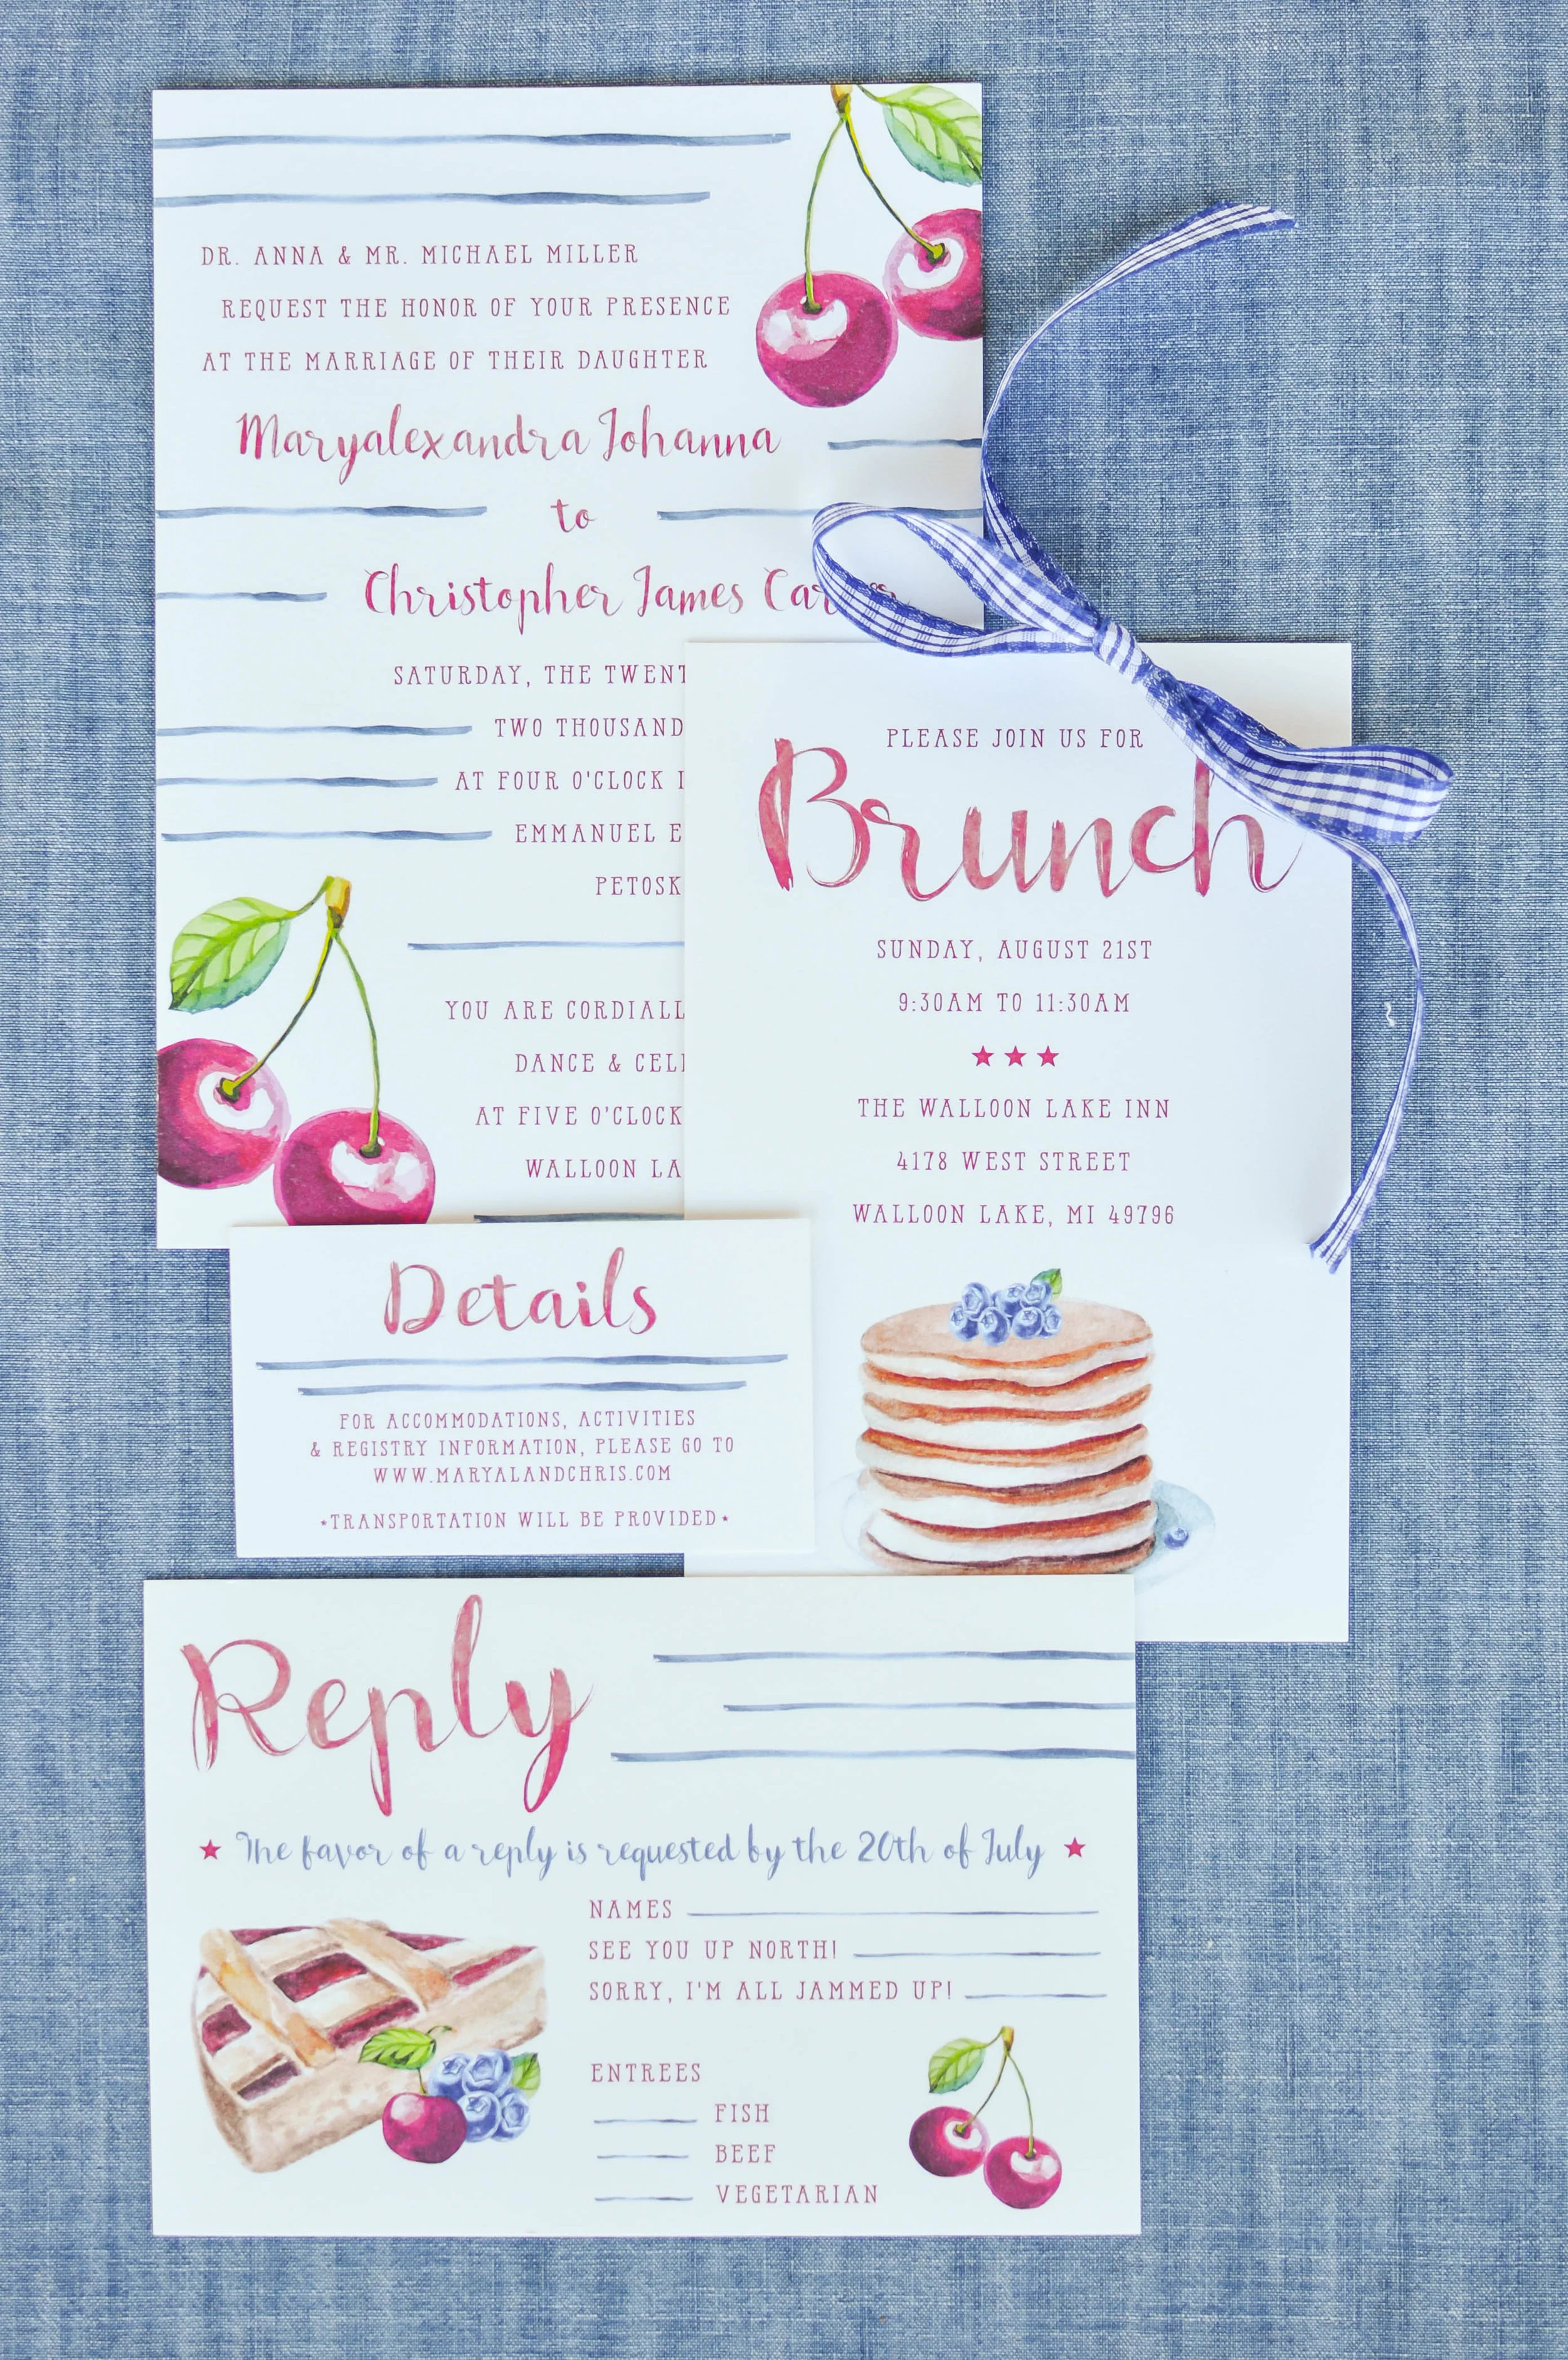 DR. ANNA & MR. MICHAEL MILLER
REQUEST THE HONOR OF YOUR PRESENCE
AT THE MARRIAGE OF THEIR DAUGHTER
Maryalexandra Johanna
to
Christopher James
SATURDAY, THE
TWO THOUSAND
AT FOUR O'CLOCK
EMMANUEL
YOU ARE
DANCE &
AT FIVE O'CLOCK
WALLOON
PLEASE JOIN US FOR
Brunch
SUNDAY, AUGUST 21ST
9:30AM TO 11:30AM
THE WALLOON LAKE INN
4178 WEST STREET
WALLOON LAKE, MI 49796
Details
FOR ACCOMMODATIONS, ACTIVITIES
& REGISTRY INFORMATION, PLEASE GO TO
WWW.MARYALANDCHRIS.COM
*TRANSPORTATION WILL BE PROVIDED*
Reply
The favor of a reply is requested by the 20th of July
NAMES
SEE YOU UP NORTH!
SORRY, I'M ALL JAMMED UP!
ENTREES
FISH
BEEF
VEGETARIAN